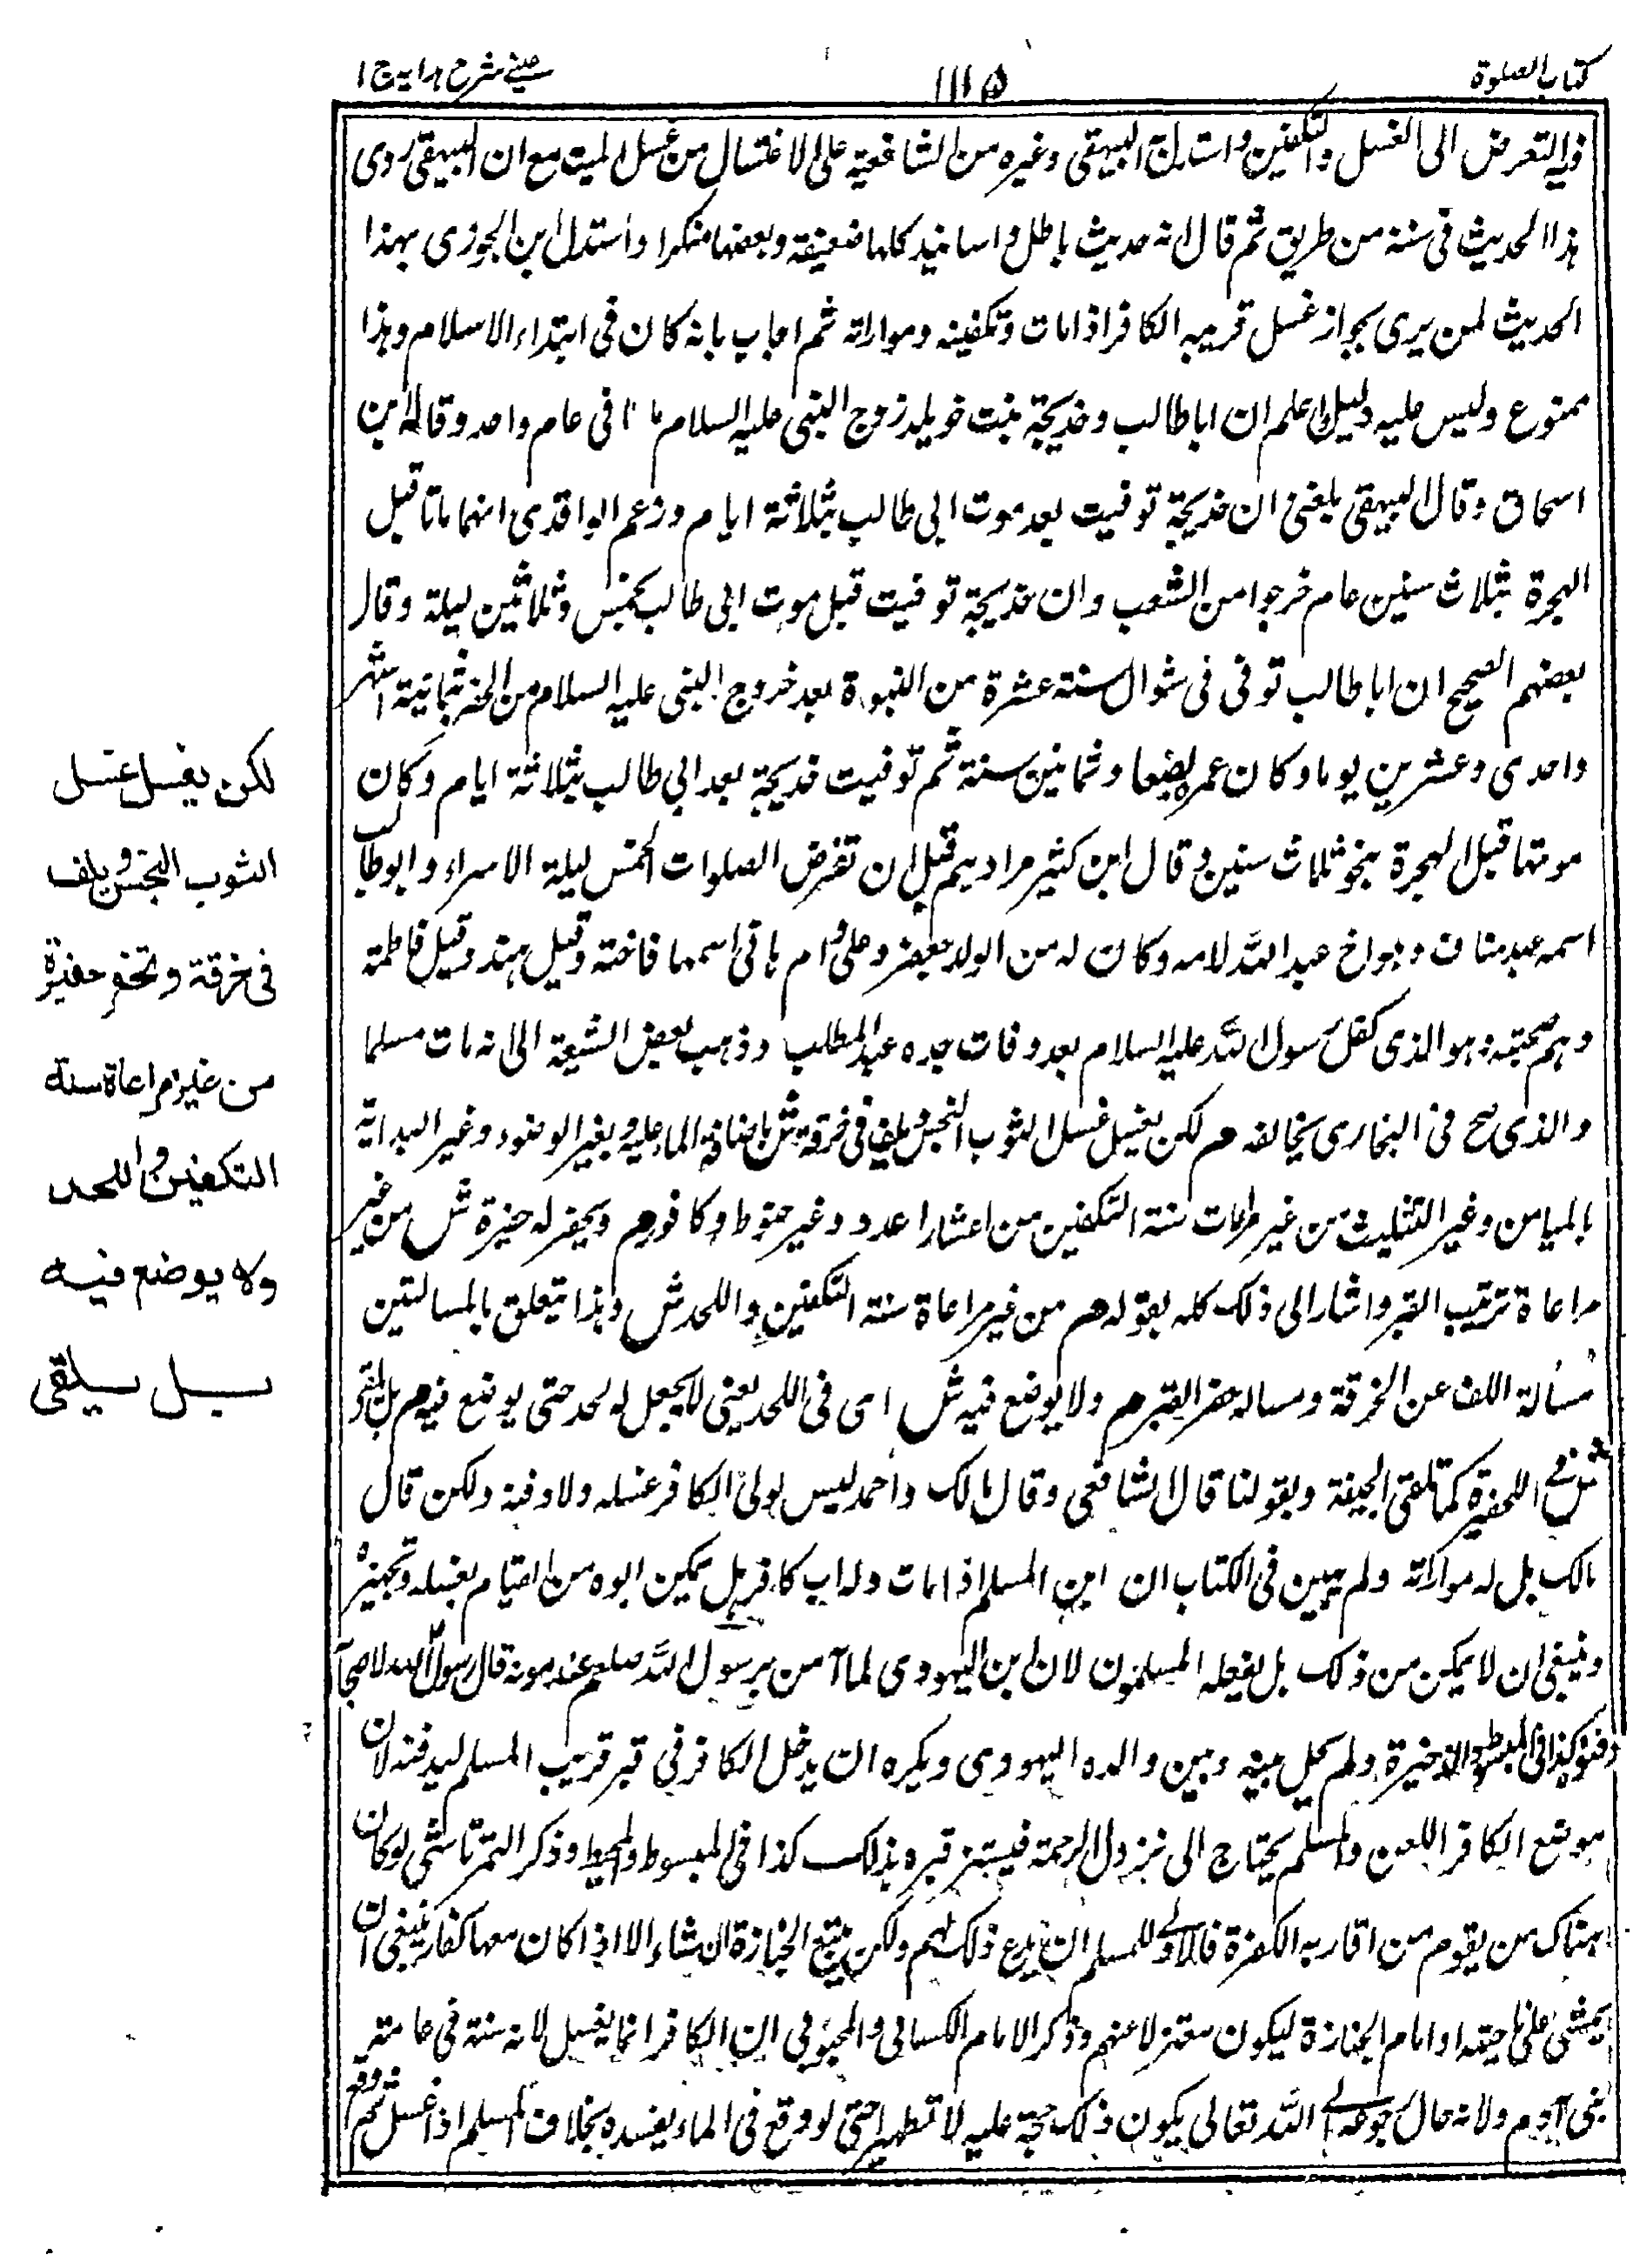 كتاب الصلوة
١١١٥
عينى شرح هدايه ج ١
فيه التعرض الى الغسل والتكفين واستدل البيهقى وغيره من الشافعية على الاغتسال من غسل الميت مع ان البيهقى روى
هذا الحديث فى سننه من طريق ثم قال انه حديث باطل واسانيده كلها ضعيفة وبعضها منكرا واستدل ابن الجوزى بهذا
الحديث لمن يرى بجواز غسل قريبه الكافر اذا مات وتكفينه ومواراته ثم اجاب بانه كان فى ابتداء الاسلام وهذا
ممنوع وليس عليه دليل واعلم ان ابا طالب وخديجة بنت خويلد زوج النبى عليه السلام ماتا فى عام واحد وقاله ابن
اسحاق وقال البيهقى بلغنى ان خديجة توفيت بعد موت ابى طالب بثلاثة ايام وزعم الواقدى انهما ماتا قبل
الهجرة بثلاث سنين عام خرجوا من الشعب وان خديجة توفيت قبل موت ابى طالب بخمس وثلاثين ليلة وقال
بعضهم الصحيح ان ابا طالب توفى فى شوال سنة عشرة من النبوة بعد خروج النبى عليه السلام من الحضر بثمانية اشهر
واحدى وعشرين يوما وكان عمره بضعا وثمانين سنة ثم توفيت خديجة بعد ابى طالب بثلاثة ايام وكان
موتها قبل الهجرة بنحو ثلاث سنين وقال ابن كثير مرادهم قبل ان تفرض الصلوات الخمس ليلة الاسراء وابو طالب
اسمه عبد مناف وهو اخ عبد الله لامه وكان له من الولد جعفر وعلى وام هانى اسمها فاختة وقيل هند وقيل فاطمة
وهم صحبته وهو الذى كفل رسول الله عليه السلام بعد وفات جده عبد المطلب وذهب بعض الشيعة الى انه مات مسلما
والذى صح فى البخارى يخالفه م لكن يغسل غسل الثوب النجس ويلف فى خرقة ش باضافة الماء عليه وبغير الوضوء وغير البداية
بالميامن وغير التثليث ومن غير مراعات سنة التكفين من اعشار عدد وغير حنوط وكافور م ويحفر له حفيرة ش من غير
مراعاة ترتيب القبر واشار الى ذلك كله بقوله م من غير مراعاة سنة التكفين واللحد ش وهذا يتعلق بالمسالتين
مسألة اللف عن الخرقة ومسالة حفر القبر م ولا يوضع فيه ش اى فى اللحد يعنى لا يجعل له لحد حتى يوضع فيه م بل يلقى
ش فى الحفيرة كما تلقى الجيفة وبقولنا قال الشافعى وقال مالك واحمد ليس لولى الكافر غسله ولا دفنه ولكن قال
مالك بل له مواراته ولم يبين فى الكتاب ان ابن المسلم اذا مات وله اب كافر هل يمكن ابوه من القيام بغسله وتجهيزه
وينبغى ان لا يمكن من ذلك بل يفعله المسلمون لان ابن اليهودى لما آمن برسول الله صلعم عند موته قال رسول الله لاصحابه
دفنوه كذا فى المبسوط والذخيرة ولم يخل بينه وبين والده اليهودى ويكره ان يدخل الكافر فى قبر قريب المسلم ليدفنه لان
موضع الكافر اللعن والمسلم يحتاج الى نزول الرحمة فيستنزه قبره بذلك كذا فى المبسوط والمحيط وذكر التمرتاشى لو كان
هناك من يقوم من اقاربه الكفرة فالاولى للمسلم ان يدع ذلك لهم ولكن يتبع الجنازة ان شاء الا اذا كان معها كفار ينبغى ان
يمشى على ناحية او امام الجنازة ليكون معتزلا عنهم وذكر الامام الكسائى والمحبوبى ان الكافر انما يغسل لانه سنة فى عامة
بنى آدم ولانه حال رجوعه الى الله تعالى يكون ذلك حجة عليه لا تطهيرا حتى لو وقع فى الماء يفسده بخلاف المسلم اذا غسل ثم وقع
لكن يغسل غسل
الثوب النجس ويلف
فى خرقة وتحفر حفيرة
من غير مراعاة سنة
التكفين واللحد
ولا يوضع فيه
بل يلقى